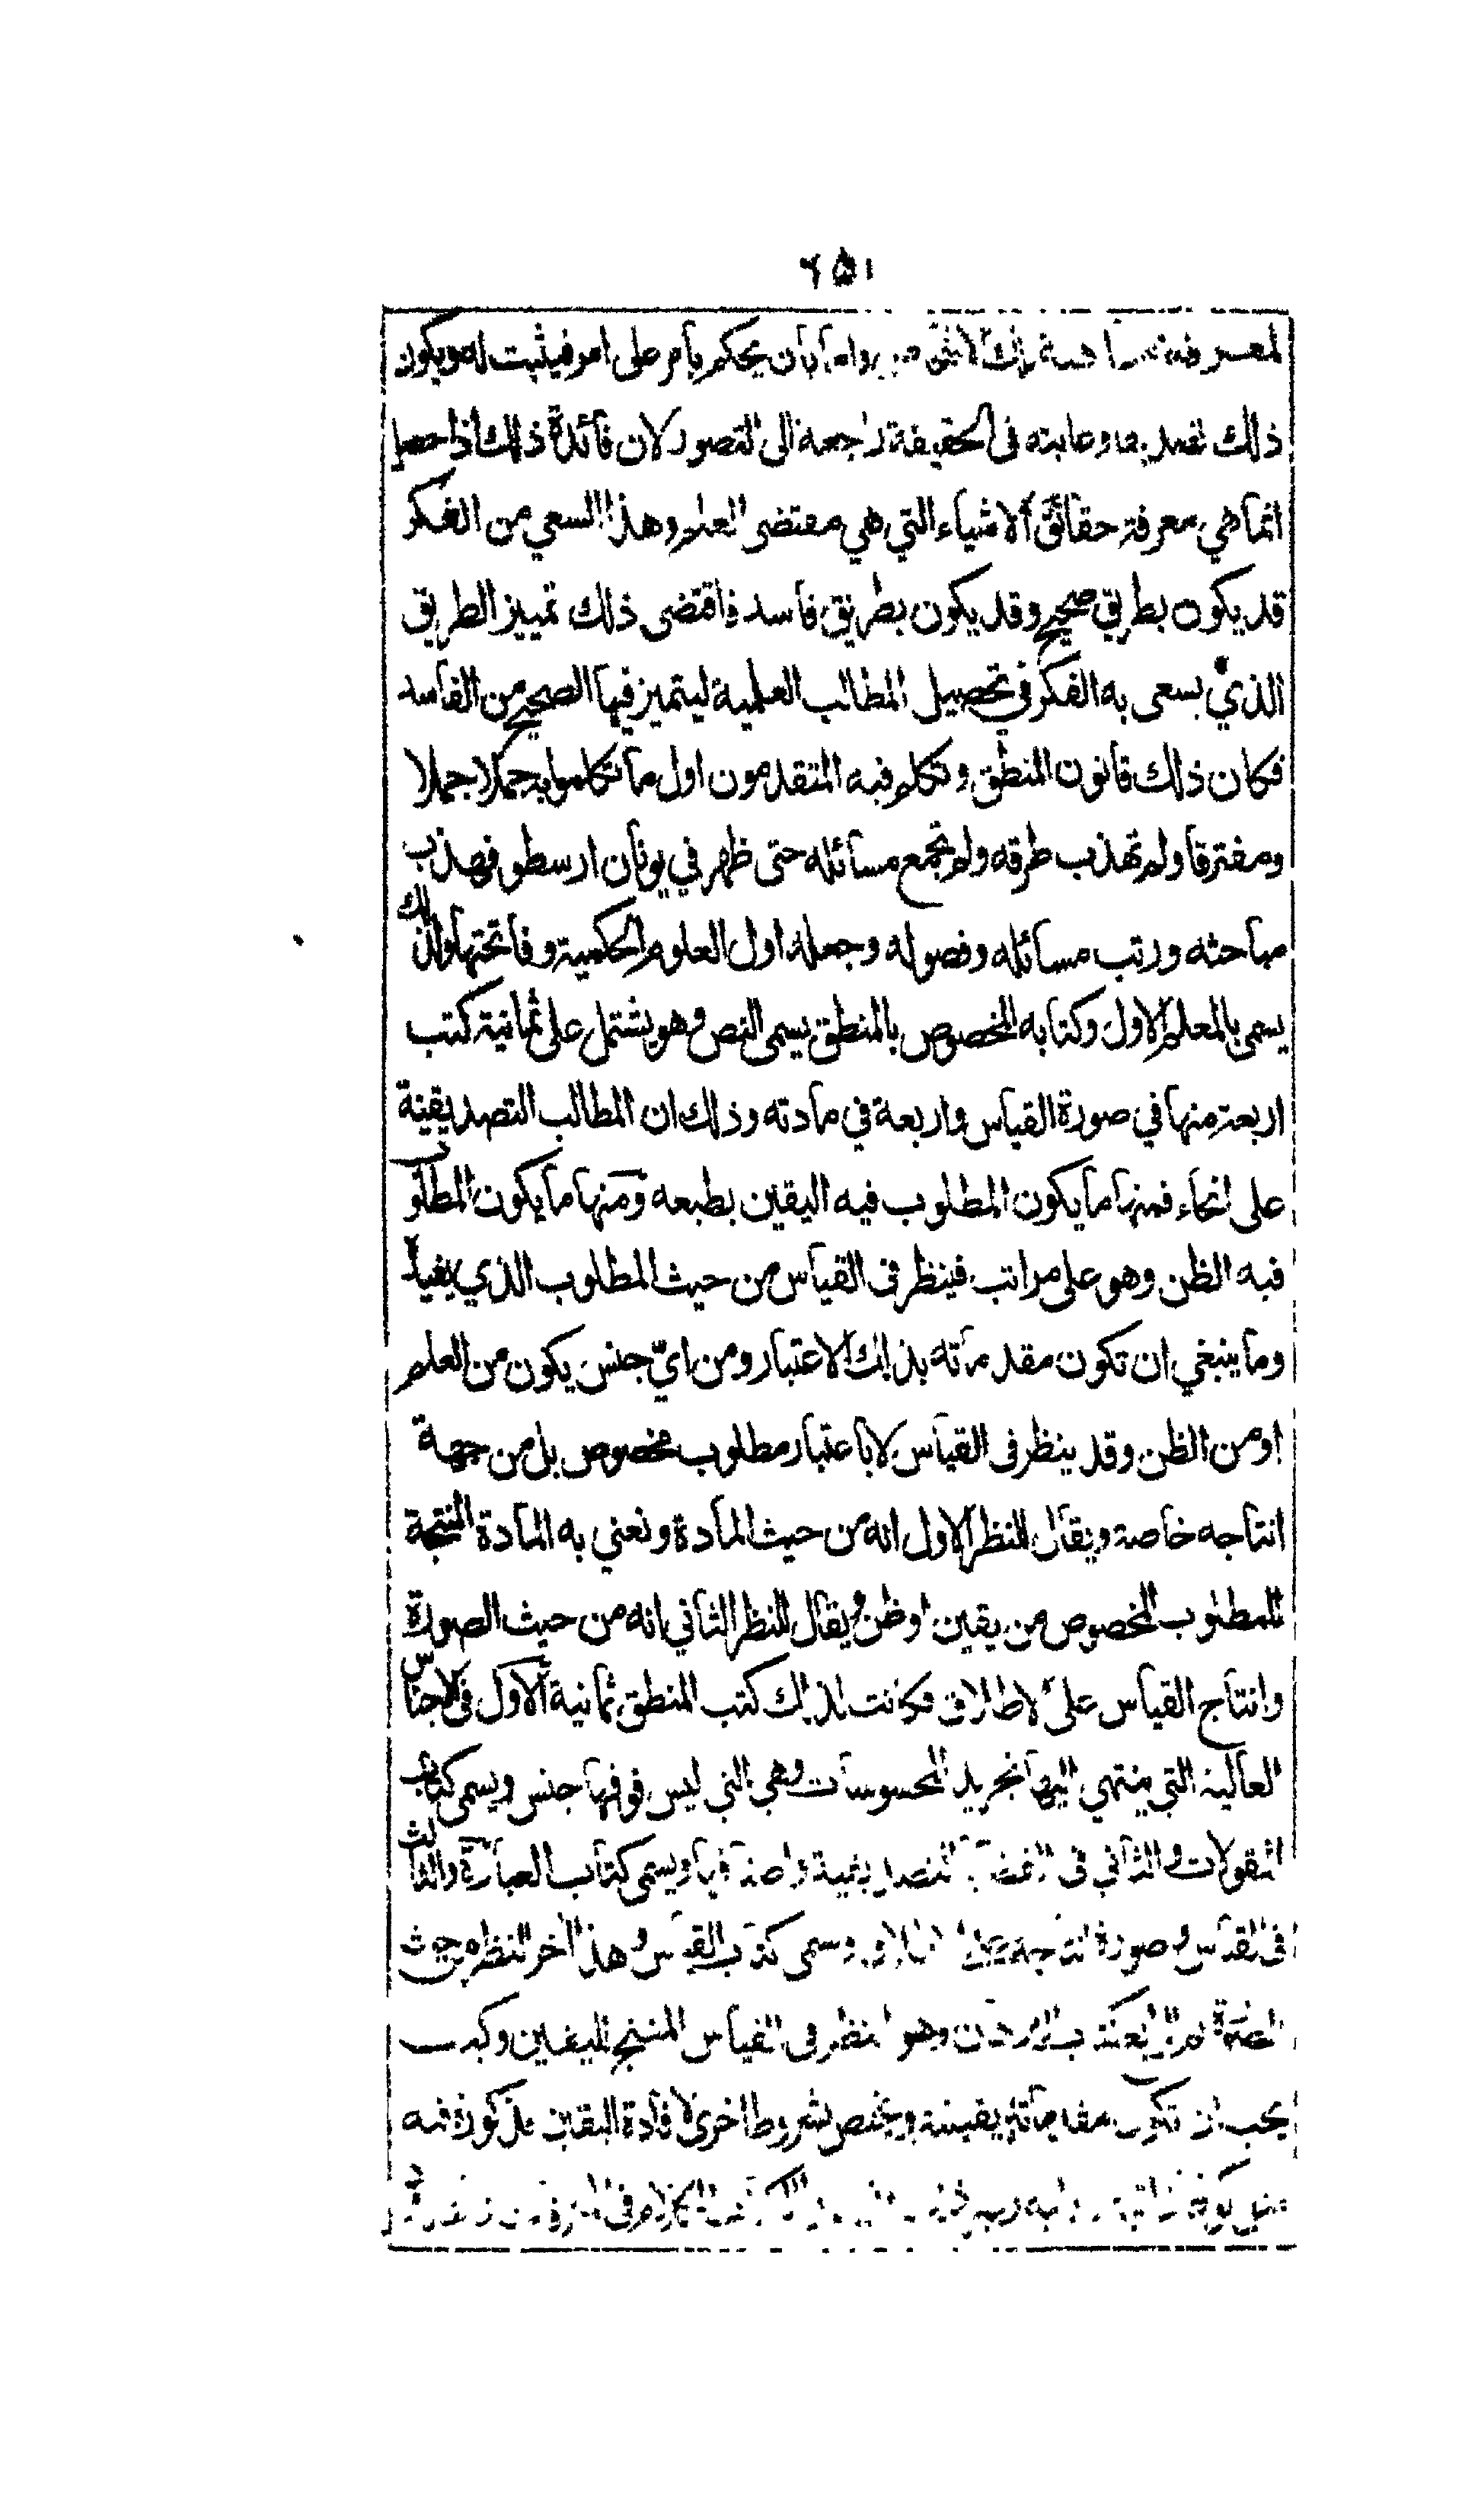 ٦٥١
لمعرفة ماهية تلك الأشخاص واما بان يحكم بأمر على امر فيثبت له ويكون
ذلك تصديقا وغايته فى الحقيقة راجعة الى التصور لان فائدة ذلك اذا حصل
انما هي معرفة حقائق الاشياء التي هي مقتضى العلم وهذا السعي من الفكر
قد يكون بطريق صحيح وقد يكون بطريق فاسد فاقتضى ذلك تمييز الطريق
الذي يسعى به الفكر في تحصيل المطالب العلمية ليتميز فيها الصحيح من الفاسد
فكان ذلك قانون المنطق وتكلم فيه المتقدمون اول ما تكلموا به جملا جملا
ومفترقا ولم تهذب طرقه ولم تجمع مسائله حتى ظهر في يونان ارسطو فهذب
مباحثه ورتب مسائله وفصوله وجعله اول العلوم الحكمية وفاتحتها ولذلك
يسمى بالمعلم الاول وكتابه المخصوص بالمنطق يسمى النص وهو يشتمل على ثمانية كتب
اربعة منها في صورة القياس واربعة في مادته وذلك ان المطالب التصديقية
على انحاء فمنها ما يكون المطلوب فيه اليقين بطبعه ومنها ما يكون المطلوب
فيه الظن وهو على مراتب فينظر فى القياس من حيث المطلوب الذي يفيد
وما ينبغي ان تكون مقدماته بذلك الاعتبار ومن ايّ جنس يكون من العلم
او من الظن وقد ينظر فى القياس لا باعتبار مطلوب مخصوص بل من جهة
انتاجه خاصة ويقال للنظر الاول انه من حيث المادة ونعني به المادة المنتجة
للمطلوب المخصوص من يقين او ظن ويقال للنظر الثاني انه من حيث الصورة
وانتاج القياس على الاطلاق فكانت لذلك كتب المنطق ثمانية الاول فى الاجناس
العالية التي ينتهي اليها تجريد المحسوسات وهي التي ليس فوقها جنس ويسمى كتاب
المقولات والثاني فى القضايا التصديقية واصنافها ويسمى كتاب العبارة والثالث
فى القياس وصورة انتاجه على الاطلاق ويسمى كتاب القياس وهذا آخر النظر من حيث
الصورة ثم الرابع كتاب البرهان وهو النظر فى القياس المنتج لليقين وكيف
يجب ان تكون مقدماته يقينية ويختص بشروط اخرى لافادة اليقين مذكورة فيه
مثل كونها ذاتية